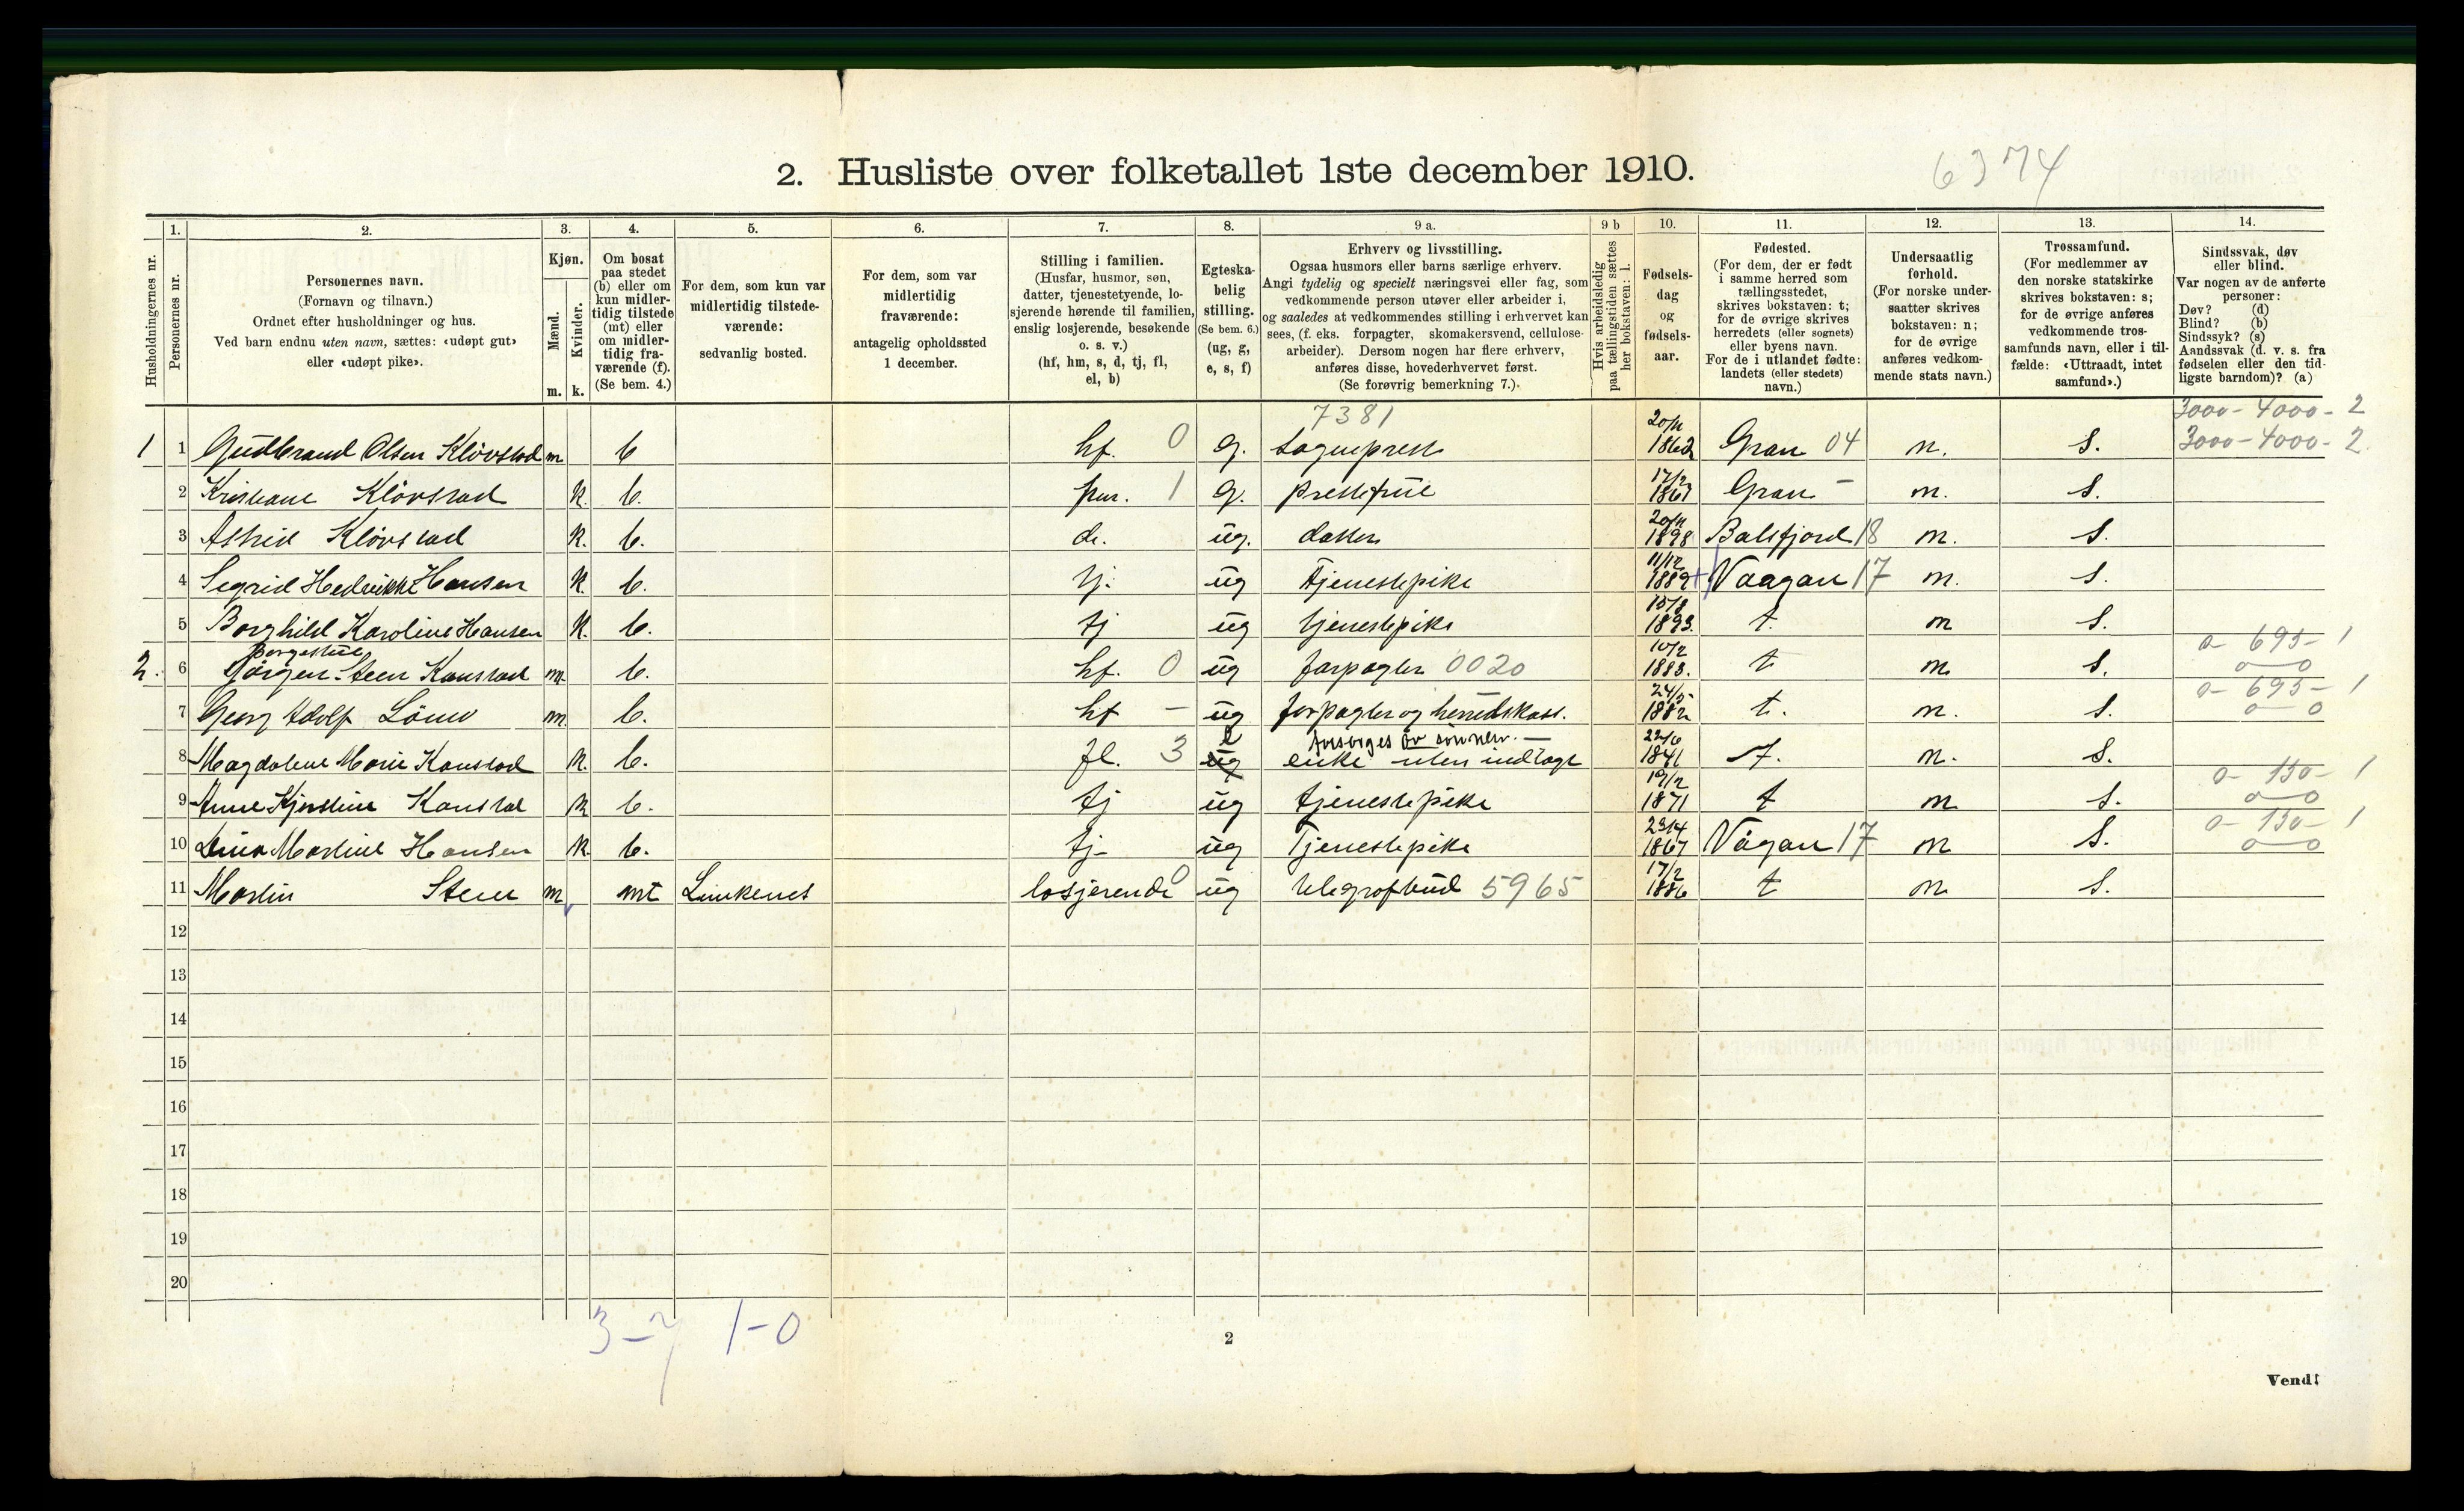 2. Husliste over folketallet 1ste december 1910.
6374
Husholdningernes nr.
1.
Personernes nr.
2.
Personernes navn.
(Fornavn og tilnavn.)
Ordnet efter husholdninger og hus.
Ved barn endnu uten navn, sættes: «udøpt gut»
eller «udøpt pike».
3.
Kjøn.
Mænd.
Kvinder.
m. k.
4.
Om bosat
paa stedet
(b) eller om
kun midler-
tidig tilstede
(mt) eller
om midler-
tidig fra-
værende (f).
(Se bem. 4.)
5.
For dem, som kun var
midlertidig tilstede-
værende:
sedvanlig bosted.
6.
For dem, som var
midlertidig
fraværende:
antagelig opholdssted
1 december.
7.
Stilling i familien.
(Husfar, husmor, søn,
datter, tjenestetyende, lo-
sjerende hørende til familien,
enslig losjerende, besøkende
o. s. v.)
(hf, hm, s, d, tj, fl,
el, b)
8.
Egteska-
belig
stilling.
(Se bem. 6.)
(ug, g,
e, s, f)
9 a.
Erhverv og livsstilling.
Ogsaa husmors eller barns særlige erhverv.
Angi tydelig og specielt næringsvei eller fag, som
vedkommende person utøver eller arbeider i,
og saaledes at vedkommendes stilling i erhvervet kan
sees, (f. eks. forpagter, skomakersvend, cellulose-
arbeider). Dersom nogen har flere erhverv,
anføres disse, hovederhvervet først.
(Se forøvrig bemerkning 7.)
9 b
Hvis arbeidsledig
paa tællingstiden sættes
her bokstaven: l.
10.
Fødsels-
dag
og
fødsels-
aar.
11.
Fødested.
(For dem, der er født
i samme herred som
tællingsstedet,
skrives bokstaven: t;
for de øvrige skrives
herredets (eller sognets)
eller byens navn.
For de i utlandet fødte:
landets (eller stedets)
navn.)
12.
Undersaatlig
forhold.
(For norske under-
saatter skrives
bokstaven: n;
for de øvrige
anføres vedkom-
mende stats navn.)
13.
Trossamfund.
(For medlemmer av
den norske statskirke
skrives bokstaven: s;
for de øvrige anføres
vedkommende tros-
samfunds navn, eller i til-
fælde: «Uttraadt, intet
samfund».)
14.
Sindssvak, døv
eller blind.
Var nogen av de anførte
personer:
Døv? (d)
Blind? (b)
Sindssyk? (s)
Aandssvak (d. v. s. fra
fødselen eller den tid-
ligste barndom)? (a)
7381 3000-4000-2
1 1 Gudbrand Olsen Klövstad m b hf. 0 g. sogneprest 20/11 1862 Gran 04 n. S. 3000-4000-2
2 Kristiane Klövstad k. b. g. prestefrue 17/2 1867 Gran - n. S.
3 Astrid Klövstad k. b. d. ug. datter 20/11 1898 Balsfjord 18 n. S.
4 Sigrid Hedrikke Hansen k. b. tj. ug Tjenestepike 11/12 1889 Vaagan 17 n. S.
5 Borghild Karoline Hansen k. b. tj ug tjenestepike 15/8 1893. t. n S.
Bergestue 0- 695- 1
2. 6 Jörgen Steen Kanstad m. b. hf. 0 ug forpagter 0020 10/2 1883. t n S. 0 0
0- 695- 1
7 Georg Adolf m. b. hf - ug forpagter og herredskass. 24/5 1882 t. n. S. 0 0
forsørges av sönnen. -
8 Magdalene Marie Kanstad k. b. fl. 3 e ug enke uten indtægt 22/6 1841 t. n. S.
0- 150- 1
9 Anne Kjerstine Kanstad k b. tj ug tjenestepike 19/2 1871 t n S. 0 0
0- 150- 1
10 Martine Hansen k. b. tj- ug Tjenestepike 23/4 1867 Vågan 17 n S. 0 0
11 Martin Steen m mt losjerende 0 ug telegrafbud 5965 17/2 1886 t n S.
12
13
14
15
16
17
18
19
20
3-7 1-0
2
Vend!